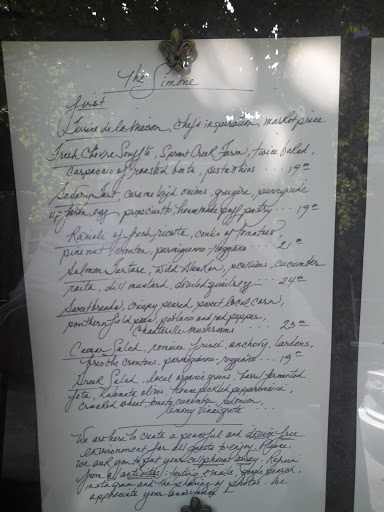 The Simone
first
Terrine de la Maison, chef's inspiration, market price
Fresh Chevre Soufflé, Sprout Creek Farm, twice baked,
carpaccio of roasted beets, pistachios . . . 19.00
Savory Tart, caramelized onions, gruyère, sunnyside
up farm egg, prosciutto, homemade puff pastry . . . 19.00
Ravioli of fresh ricotta, conka of tomatoes,
pine nut, parmigiano-reggiano . . . 21.00
Salmon Tartare, Wild Alaskan, scallions, cucumber
raita, dill mustard, deviled quail egg . . . 24.00
Sweetbreads, crispy seared, sweet local corn,
southern field peas, poblano and red pepper,
Chanterelle mushrooms . . . 23.00
Caesar Salad, romaine, frisée, anchovy, lardons,
brioche croutons, parmigiano-reggiano . . . 19.00
Greek Salad, local organic greens, barrel fermented
feta, kalamata olives, house pickled pepperoncini,
cracked wheat, tomato, cucumber, red onion,
lemony vinaigrette
We are here to create a peaceful and device-free
environment for all guests to enjoy. Please,
we ask you to put your cell phones away. Refrain
from all activities - texting, emails, google search,
instagram and the sharing of photos. We
appreciate your assistance